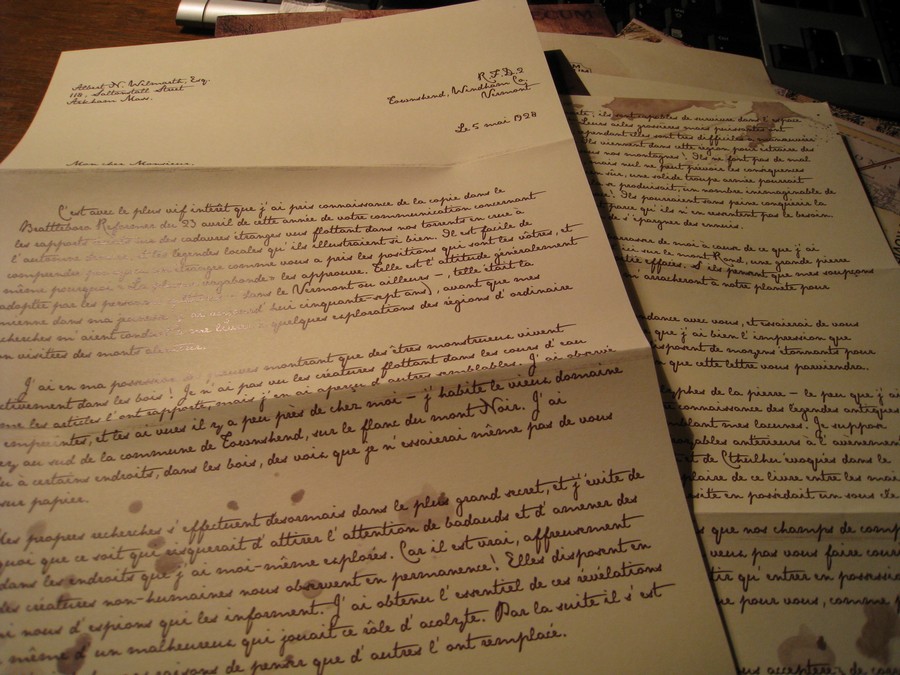 Albert N. Wilmarth, Esq.
118, Saltonstall Street
Arkham Mass.
R.F.D. 2
Townshend, Windham Co,
Vermont
Le 5 mai 1928
Mon cher Monsieur,
C'est avec le plus vif intérêt que j'ai pris connaissance de la copie dans le
Brattleboro Reformer du 23 avril de cette année de votre communication concernant
les rapports des cadavres étranges vus flottant dans nos torrents en crue à
l'automne et les légendes locales qu'ils illustraient si bien. Il est facile de
comprendre étranger comme vous a pris les positions qui sont les vôtres, et
même pourquoi « » les approuve. Elle est l'attitude généralement
adoptée par les dans le Vermont ou ailleurs —, telle était la
mienne dans ma jeunesse hui cinquante-sept ans), avant que mes
cherches m'aient quelques explorations des régions d'ordinaire
visitées des monts
J'ai en ma preuves montrant que des êtres monstrueux vivent
dans les bois ! Je n'ai pas vu les créatures flottant dans les cours d'eau
les articles l'ont rapporté, mais j'en ai aperçu d'autres semblables ! J'ai observé
empreintes, et les ai vues il y a peu près de chez moi — j'habite le vieux domaine
au sud de la commune de Townshend, sur le flanc du mont Noir. J'ai
à certains endroits, dans les bois, des voix que je n'essaierai même pas de vous
sur papier.
Mes propres recherches s'effectuent désormais dans le plus grand secret, et j'évite de
quoi que ce soit qui risquerait d'attirer l'attention de badauds et d'amener des
dans les endroits que j'ai moi-même explorés. Car il est vrai, affreusement
des créatures non-humaines nous observent en permanence ! Elles disposent en
nous d'espions qui les informent. J'ai obtenu l'essentiel de ces révélations
même d'un malheureux qui jouait ce rôle d'acolyte. Par la suite il s'est
raisons de penser que d'autres l'ont remplacé.
ils sont capables de survivre dans l'espace
leurs ailes grossières mais puissantes
cependant elles sont très difficiles à manœuvrer
Ils viennent dans cette région pour extraire des
nos montagnes ! Ils ne font pas de mal
mais nul ne peut prévoir les conséquences
sûr, une solide troupe armée pourrait
se produisait, un nombre inimaginable de
Ils pourraient sans peine conquérir la
parce qu'ils n'en ressentent pas le besoin.
s'épargner des ennuis.
de moi à cause de ce que j'ai
ici sur le mont Rond, une grande pierre
effacés. S'ils pensent que mes soupçons
m'arracheront à notre planète pour
avec vous, et essaierai de vous
que j'ai bien l'impression que
disposent de moyens étonnants pour
que cette lettre vous parviendra.
de la pierre — le peu que j'ai
connaissance des légendes antiques
mes lacunes. Je suppose
antérieurs à l'avènement
et de Cthulhu évoqués dans le
de ce livre entre les mains
en possédait un sous clé.
que nos champs de
veux pas vous faire courir
qu'entrer en possession
que pour vous, comme
vous accepterez de